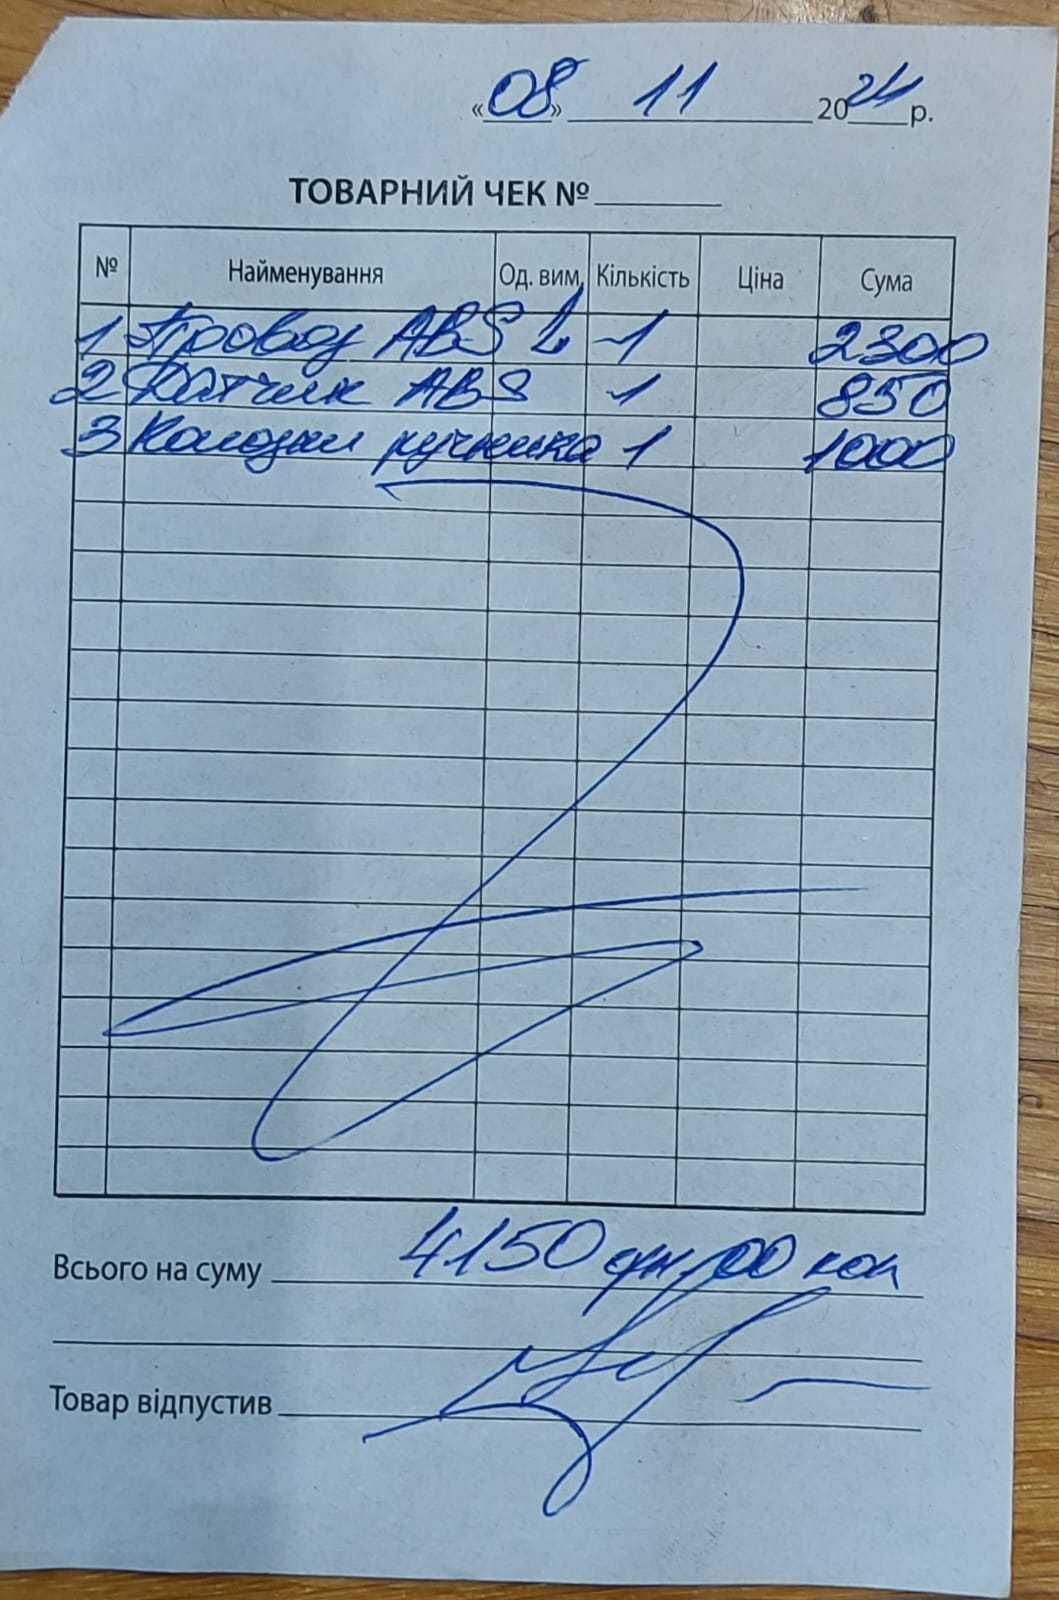 «08» 11 2024 р.
ТОВАРНИЙ ЧЕК №
№ Найменування Од. вим. Кількість Ціна Сума
1 Провод ABS L 1 2300
2 Датчик ABS 1 850
3 Колодки ручника 1 1000
Всього на суму 4150 грн 00 коп
Товар відпустив